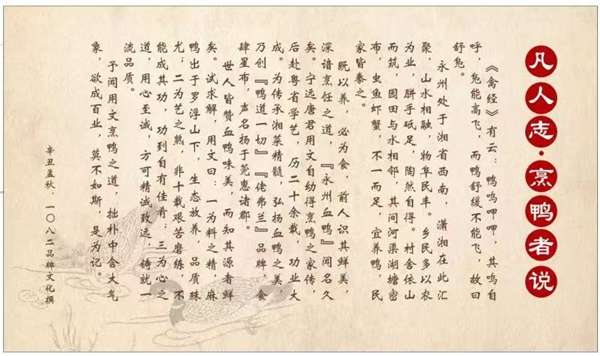 凡人志·烹鸭者说
《禽经》有云：鸭鸣呷呷，其鸣自
呼，凫能高飞，而鸭舒缓不能飞，故曰
舒凫。
永州处于湘省西南，潇湘在此汇
聚，山水相融，物阜民丰。乡民多以农
为业，胼手砥足，陶然自得。村舍依山
而筑，园田与水相邻，其间河渠湖塘密
布，虫鱼虾蟹，不一而足，宜养鸭，民
家皆豢之。
既以养，必为食，前人识其鲜美，
深谙烹饪之道，『永州血鸭』闻名久
矣。宁远唐君用文自幼得烹鸭之家传，
后赴粤省学艺，历二十余载，功业大
成。为传承湘菜精髓，弘扬血鸭之美，
乃创『鸭道一切』『佬弗兰』品牌，食
肆星布，声名扬于莞惠诸郡。
世人皆赞血鸭味美，而知其源者鲜
矣。试求解，用文曰：一为料之精，麻
鸭出于罗浮山下，生态放养，品质殊
尤；二为艺之熟，非十载艰苦磨练，不
能成其功，功到自有佳肴；三为心之
道，用心至诚，方可精诚致远，铸就一
流品质。
予闻用文烹鸭之道，拙朴中含大气
象，欲成百业，莫不如斯，是为记。
辛丑孟秋，一〇八二品牌文化撰